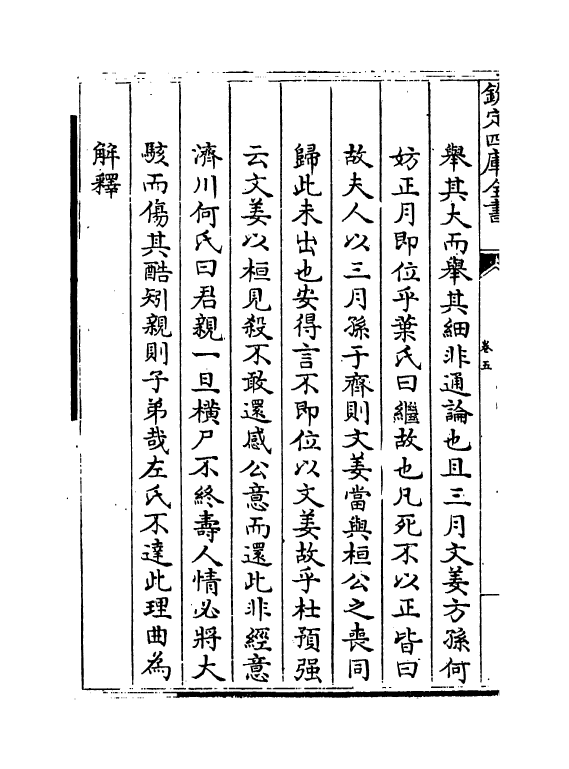 欽定四庫全書
卷五
舉其大而舉其細非通論也且三月文姜方孫何
妨正月即位乎葉氏曰繼故也凡死不以正皆曰
故夫人以三月孫于齊則文姜當與桓公之喪同
歸此未出也安得言不即位以文姜故乎杜預强
云文姜以桓見殺不敢還感公意而還此非經意
濟川何氏曰君親一旦橫尸不終壽人情必將大
駭而傷其酷矧親則子弟哉左氏不達此理曲為
解釋